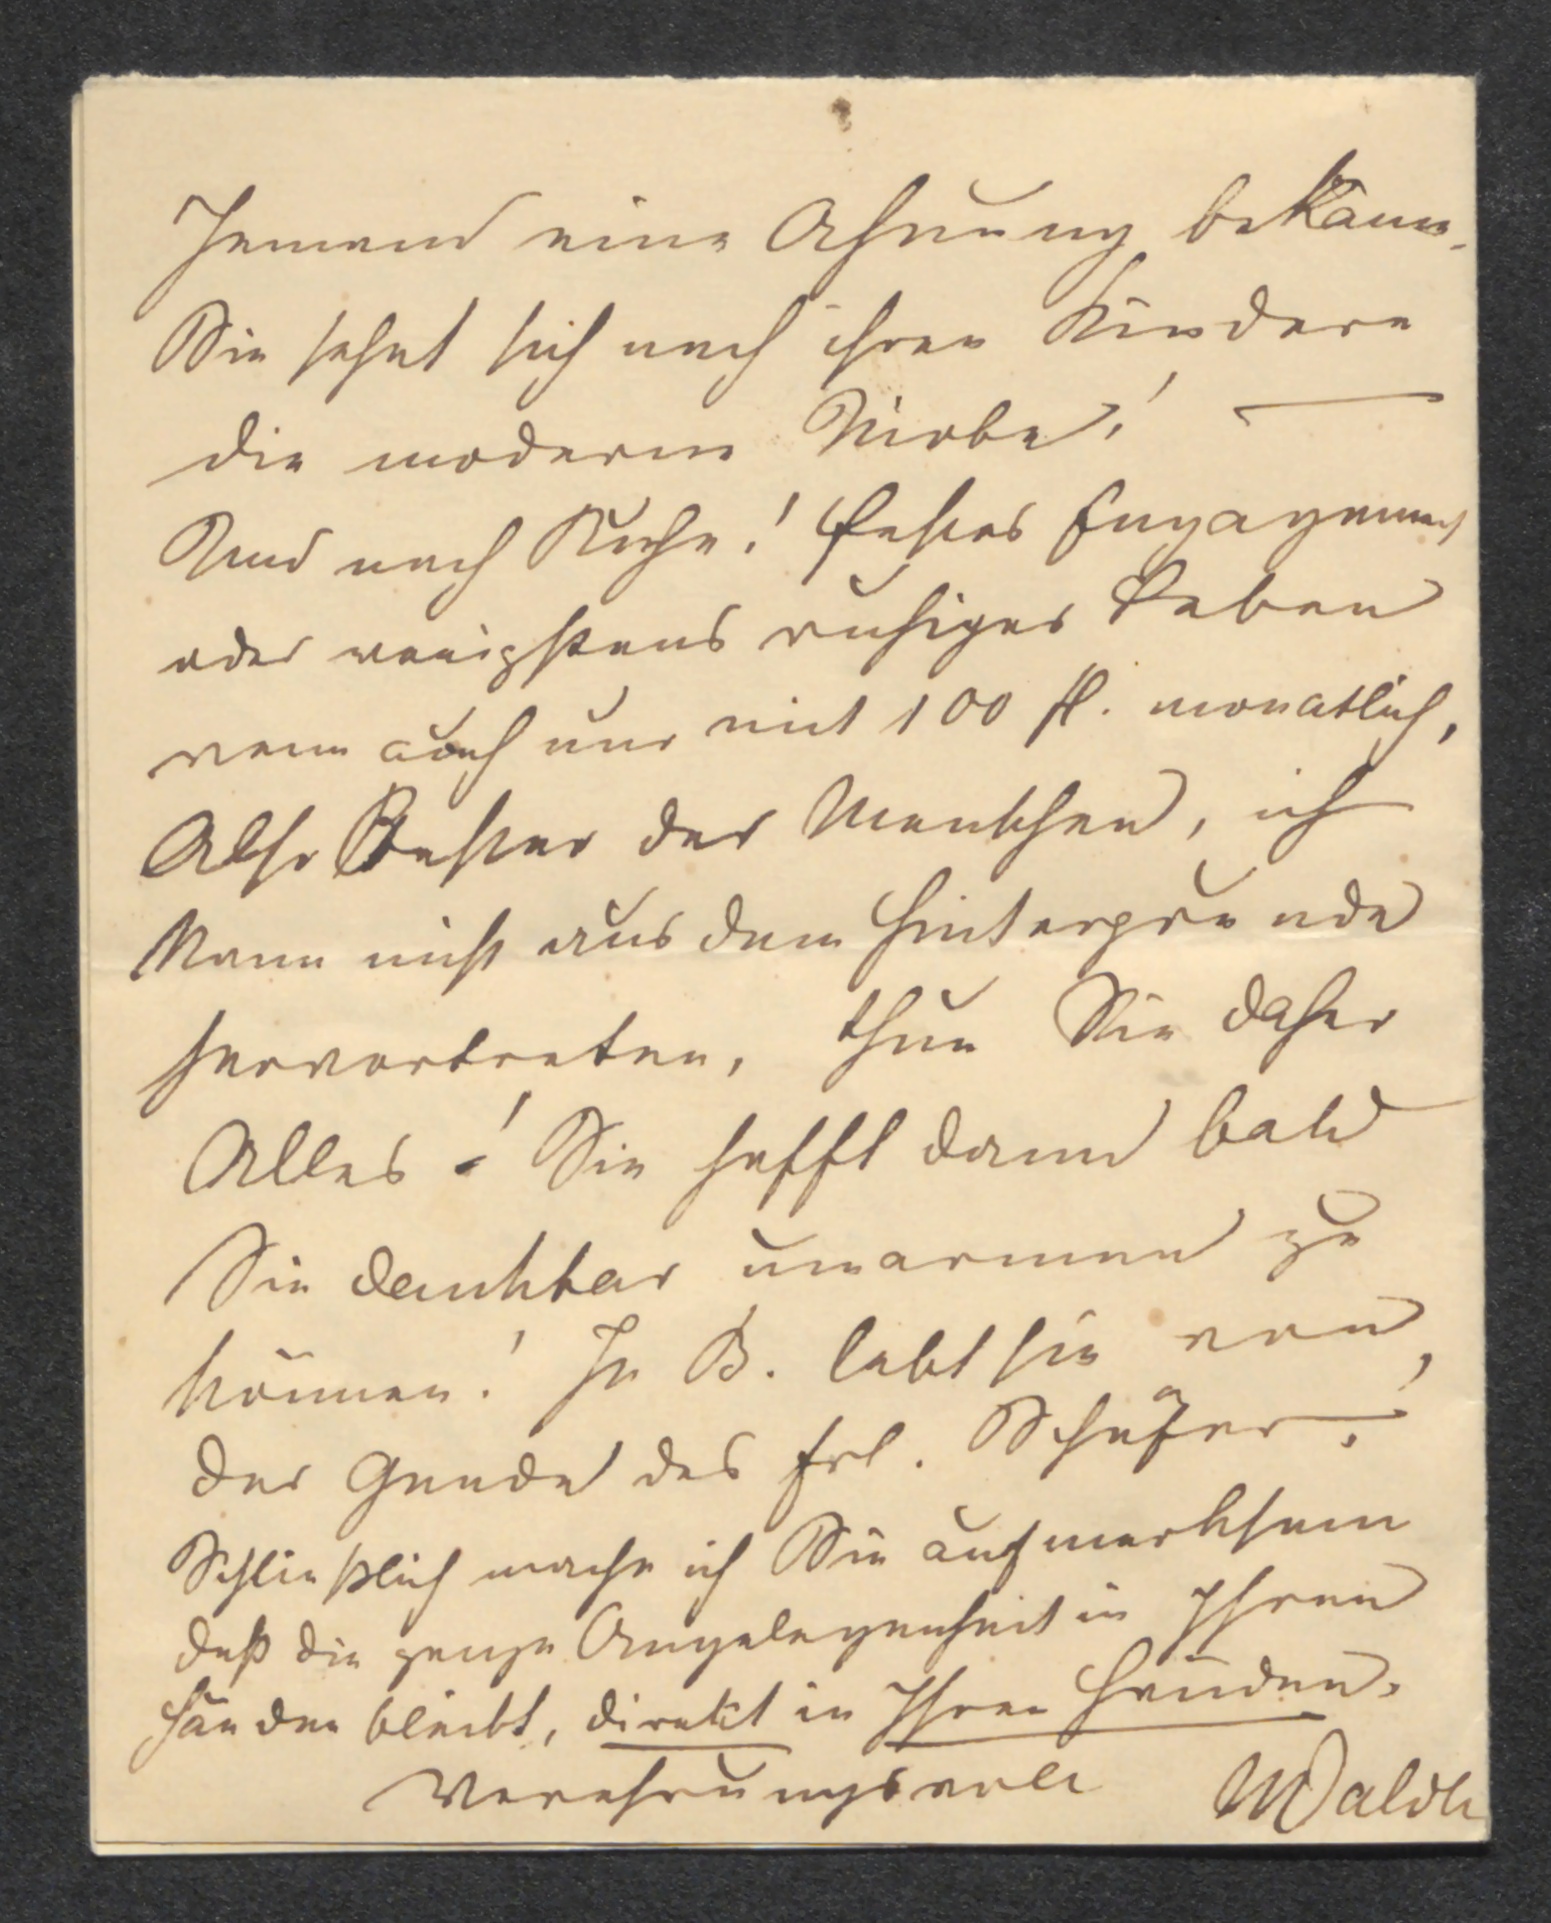 Jemand eine Ahnung bekäme.
Sie sehnt sich nach ihren Kindern
die moderne Niobe! —
Und nach Ruhe! Festes Engagement
oder wenigstens ruhiges Leben
wenn auch nur mit 100 fl. monatlich,
Also Bester der Menschen, ich
kann nicht aus dem Hintergrunde
hervortreten, thun Sie daher
Alles! Sie hofft dann bald
Sie dankbar umarmen zu
können! In B. lebt sie von
der Gnade des Frl. Schäfer!
Schließlich mache ich Sie aufmerksam
daß die ganze Angelegenheit in Ihren
Händen bleibt, direkt in Ihren Händen.
Verehrungsvoll